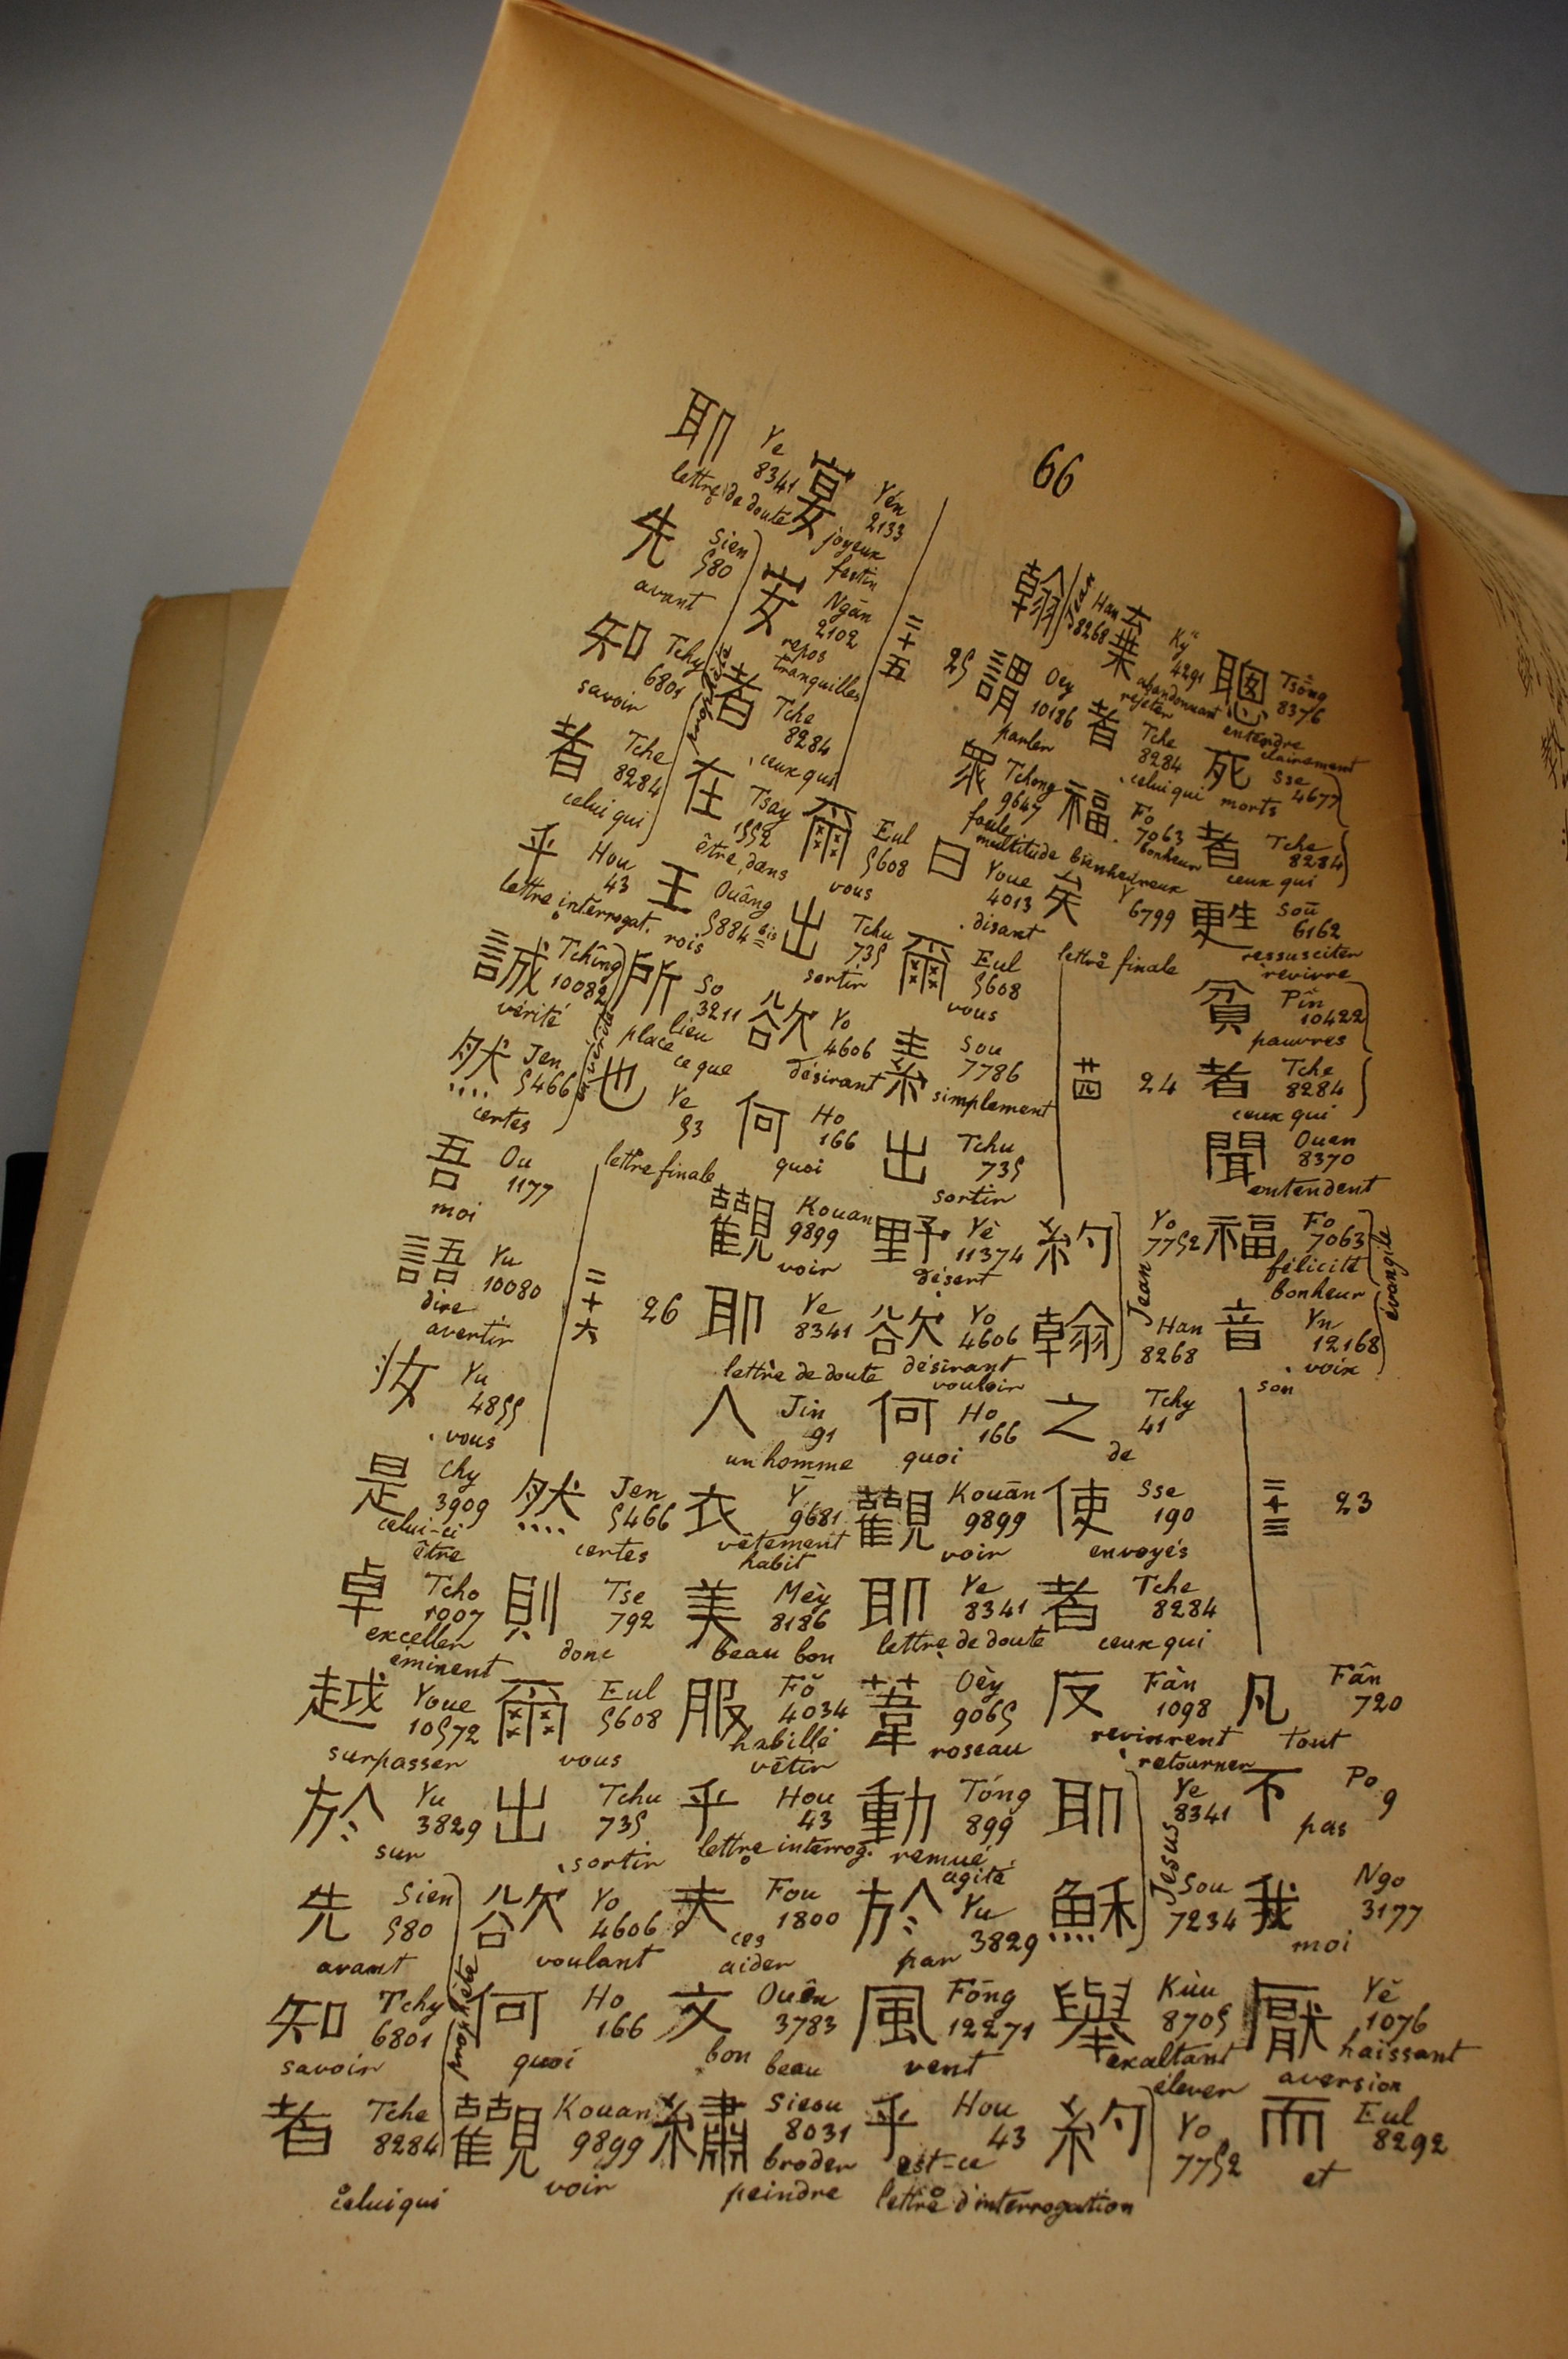 66
聰 Tsong 8376 entendre clairement
死 Sse 4677 morts
者 Tche 8284 ceux qui
甦 Soū 6162 ressusciter revivre
貧 Pîn 10422 pauvres
者 Tche 8284 ceux qui
聞 Ouen 8370 entendent
福 Fo 7063 félicité bonheur
音 Yn 12168 voix son
évangile
二十三 23
凡 Fân 720 tout
不 Po 9 pas
我 Ngo 3177 moi
厭 Yě 1076 haissant aversion
而 Eul 8292 et
棄 Ky 4291 abandonnant rejeter
者 Tche 8284 celui qui
福 Fo 7063 bonheur bienheureux
矣 Y 6799 lettre finale
廿四 24
約 Yo 7752
翰 Han 8268
Jean
之 Tchy 41 de
使 Sse 190 envoyés
者 Tche 8284 ceux qui
反 Fàn 1098 revinrent retourner
耶 Ye 8341
穌 Sou 7234
Jesus
舉 Kùu 8705 exaltant élever
約 Yo 7752
翰 Han 8268
Jean
謂 Oey 10186 parler
眾 Tchong 9647 foule multitude
曰 Youe 4013 disant
爾 Eul 5608 vous
素 Sou 7786 simplement
出 Tchu 735 sortir
野 Yè 11374 désert
欲 Yo 4606 désirant vouloir
何 Ho 166 quoi
觀 Kouān 9899 voir
耶 Ye 8341 lettre de doute
葦 Oèy 9065 roseau
動 Tóng 899 remué agité
於 Yu 3829 par
風 Fōng 12271 vent
乎 Hou 43 est-ce lettre d'interrogation
二十五 25
爾 Eul 5608 vous
出 Tchu 735 sortir
欲 Yo 4606 désirant
何 Ho 166 quoi
觀 Kouan 9899 voir
耶 Ye 8341 lettre de doute
人 Jin 91 un homme
衣 Y 9681 vêtement habit
美 Mèy 8186 beau bon
服 Fŏ 4034 habillé vêtir
乎 Hou 43 lettre interrog.
夫 Fou 1800 ces aider
文 Ouên 3783 bon beau
繡 Sieou 8031 broder peindre
宴 Yén 2133 joyeux festin
安 Ngān 2102 repos tranquilles
者 Tche 8284 ceux qui
在 Tsay 1552 être, dans
王 Ouâng 5884 bis rois
所 So 3211 lieu place ce que
也 Ye 53 lettre finale
二十六 26
然 Jen 5466 certes
則 Tse 792 donc
爾 Eul 5608 vous
出 Tchu 735 sortir
欲 Yo 4606 voulant
何 Ho 166 quoi
觀 Kouan 9899 voir
耶 Ye 8341 lettre de doute
先 Sien 580 avant
知 Tchy 6801 savoir
者 Tche 8284 celui qui
prophète
乎 Hou 43 lettre interrogat.
誠 Tchîng 10082 vérité
然 Jen 5466 certes
吾 Ou 1177 moi
語 Yu 10080 dire avertir
汝 Yu 4855 vous
是 Chy 3909 celui-ci être
卓 Tcho 1007 exceller éminent
越 Youe 10572 surpasser
於 Yu 3829 sur
先 Sien 580 avant
知 Tchy 6801 savoir
者 Tche 8284 celui qui
prophète